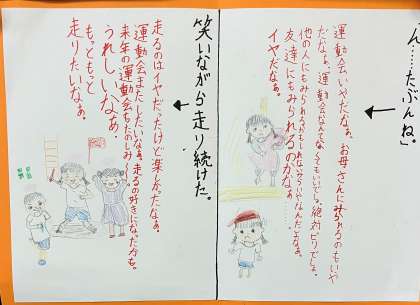 ん……たぶんね」
運動会いやだなぁ。お母さんにみられるのもいや
だなぁ。運動会なんてなくてもいいでしょ。絶対ビリでしょ。
他の人にもみられるかもしれないみたいなんだよなぁ
友達にもみられるのかなぁ……
イヤだなぁ。
笑いながら走り続けた。
走るのはイヤだったけど楽しかったなぁ。
運動会またしたいなぁ。走るの好きになったかも。
来年の運動会もたのしみ〜。
うれしいなぁ。
もっともっと
走りたいなぁ。